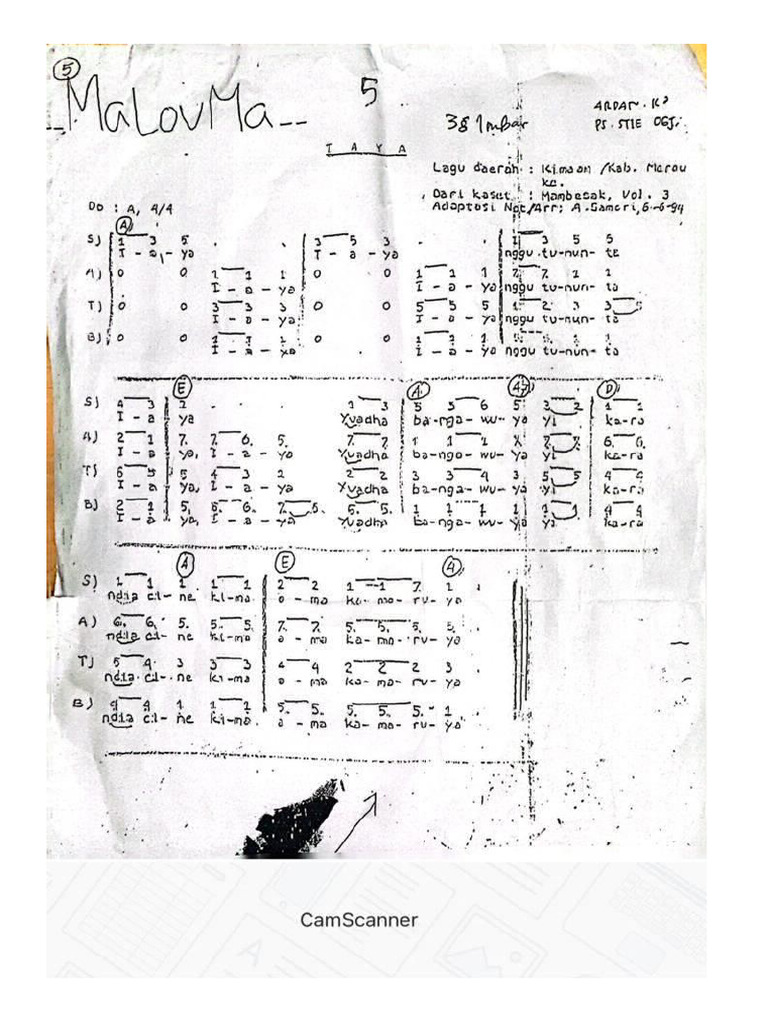 5
MaLovMa
5
ARDAT. K?
PS. STIE OGJ.
I A Y A
Lagu daerah : Kimaan /Kab. Merau
ke.
Dari kaset : Mambesak, Vol. 3
Adaptosi Not/Arr: A.Samori, 6-6-94
Do : A, 4/4
A
S) 1 3 5 . . 3 5 3 . . 1 3 5 5
I - a - ya I - a - ya nggu tu-nun- ta
A) 0 0 1 1 1 0 0 1 1 1 7. 7. 2 2
I - a - ya I - a - ya nggu tu-nun- ta
T) 0 0 3 3 3 0 0 5 5 5 1 2 3 3 5
I - a - ya I - a - ya nggu tu-nun- ta
B) 0 0 1 1 1 0 0 1 1 1
I - a - ya I - a - ya nggu tu-nun- ta
E A A7 D
S) 4 3 2 . . . 1 3 5 5 6 5 3 2 1 1
I - a ya Yuadha ba-nga-wu- ya yi ka-ra
A) 2 1 7. 7. 6. 5. 7. 7. 1 1 1
I - a ya, I - a - ya Yuadha ba-nga-wu- ya yi ka-ra
T) 6 5 5 4 3 2 2 2 3 3 4 3 5 5 4 4
I - a ya, I - a - ya Yuadha ba-nga-wu- ya yi ka-ra
B) 2 1 5. 6. 6. 7. 5. 5. 5. 1 1 1 1 1 1 4 4
I - a ya, I - a - ya Yuadha ba-nga-wu- ya yi ka-ra
A E A
S) 1 1 1 1 1 2 2 1 1 7. 1 .
ndia ci- ne ki-ma a - ma ka- ma- ru- ya
A) 6. 6. 5. 5. 5. 7. 7. 5. 5. 5. 5. .
ndia ci- ne ki-ma a - ma ka- ma- ru- ya
T) 5 4 3 3 3 4 4 2 2 2 3 .
ndia ci- ne ki-ma a - ma ka- ma- ru- ya
B) 4 4 1 1 1 5. 5. 5. 5. 5. 1 .
ndia ci- ne ki-ma. a - ma ka- ma- ru- ya
CamScanner